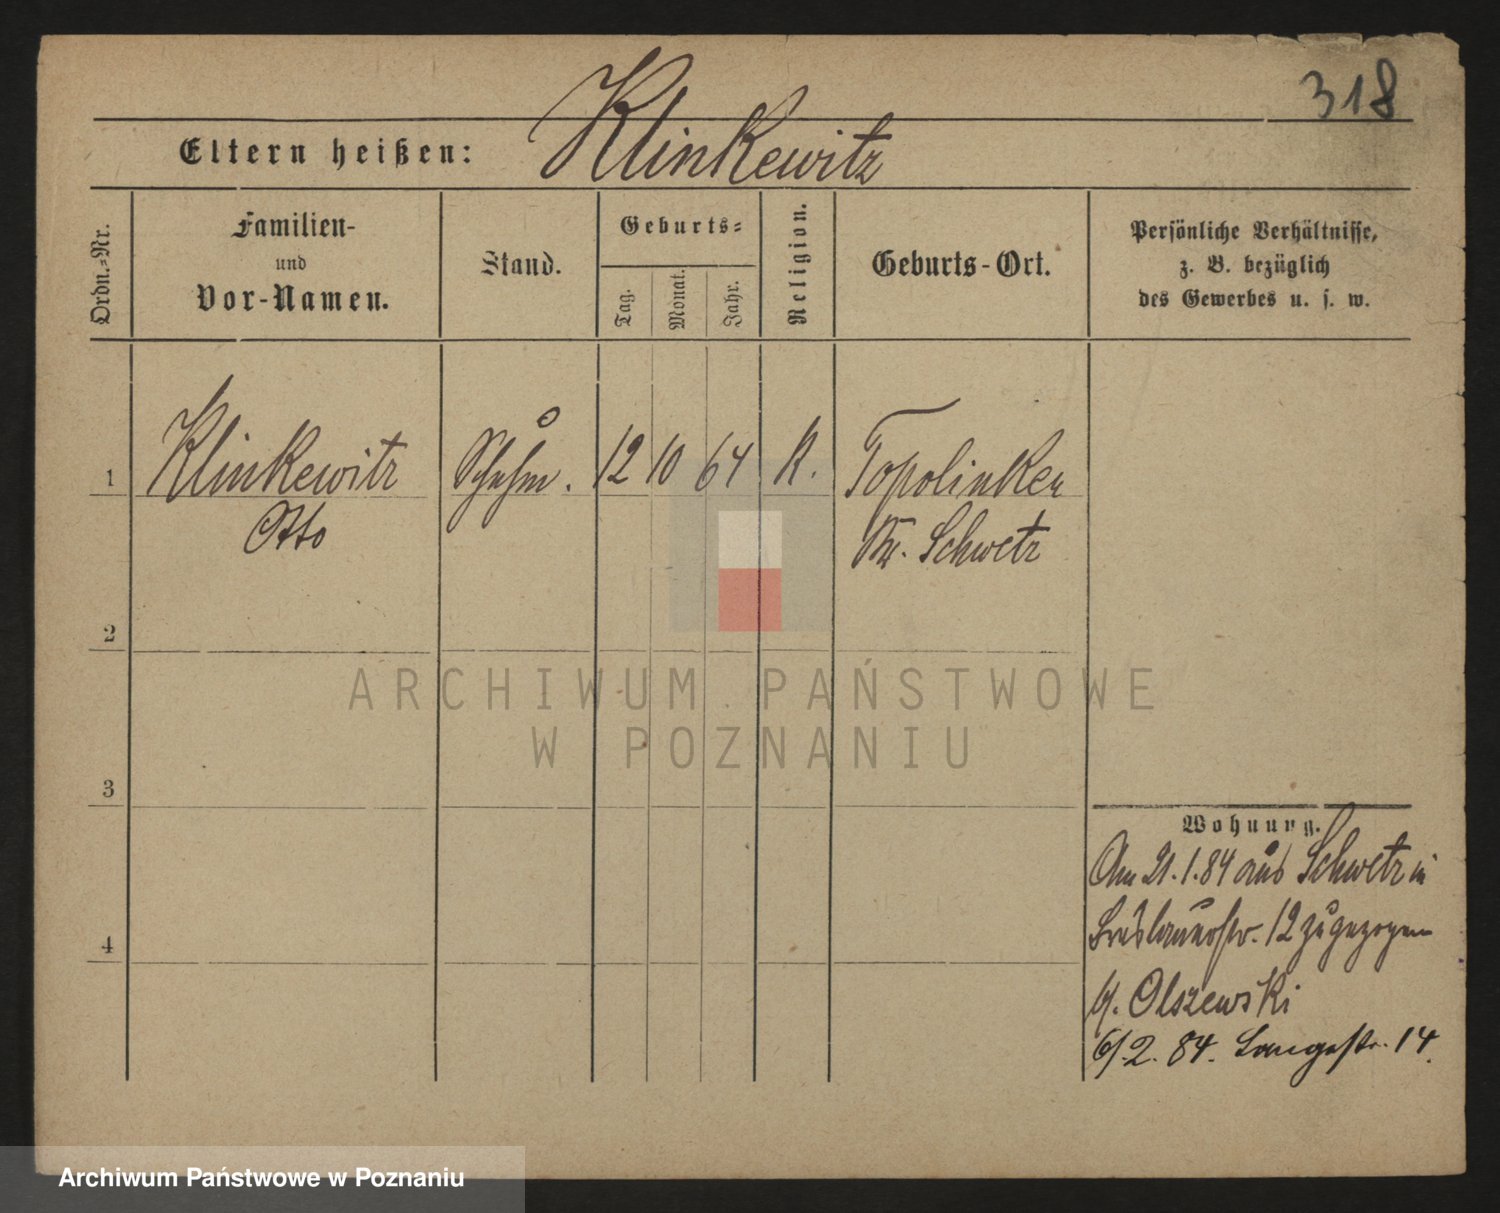 318
Eltern heißen: Klinkewitz
Ordn.-Nr.
Familien-
und
Vor-Namen.
Stand.
Geburts-
Tag.
Monat.
Jahr.
Religion.
Geburts-Ort.
Persönliche Verhältnisse,
z. B. bezüglich
des Gewerbes u. s. w.
1 Klinkewitz Schuhm. 12 10 64 K. Topolinken
Otto Kr. Schwetz
2
3
4
Wohnung.
Am 21.1.84 aus Schwetz in
Breslauerstr. 12 zugezogen
b/. Olszewski
6/2. 84. Langestr. 14.
ARCHIWUM PAŃSTWOWE
W POZNANIU
Archiwum Państwowe w Poznaniu